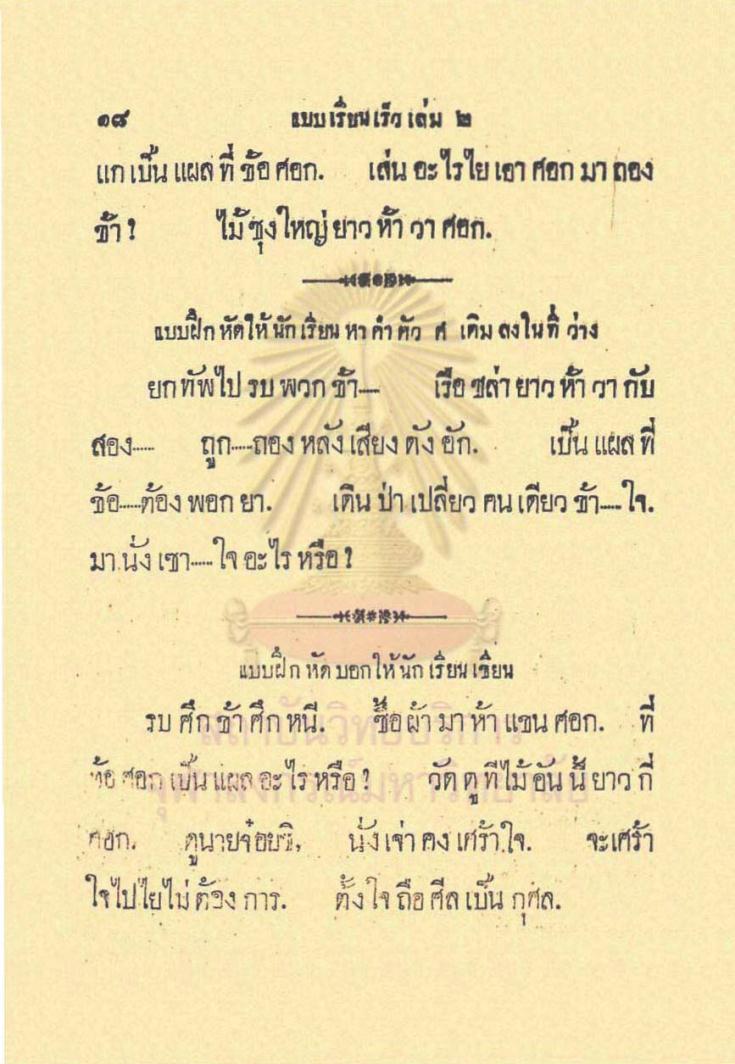 ๑๘ แบบเรียนเร็วเล่ม ๒
แกเป็นแผลที่ข้อศอก. เล่นอะไรไยเอาศอกมาถอง
ข้า? ไม้ซุงใหญ่ยาวห้าวาศอก.
แบบฝึกหัดให้นักเรียนหาคำตัว ศ เติมลงในที่ว่าง
ยกทัพไปรบพวกข้า— เรือชล่ายาวห้าวากับ
สอง— ถูก—ถองหลังเสียงดังอัก. เป็นแผลที่
ข้อ—ต้องพอกยา. เดินป่าเปลี่ยวคนเดียวข้า—ใจ.
มานั่งเซา—ใจอะไรหรือ?
แบบฝึกหัดบอกให้นักเรียนเขียน
รบศึกข้าศึกหนี. ซื้อผ้ามาห้าแขนศอก. ที่
ข้อศอกเป็นแผลอะไรหรือ? วัดดูทีไม้อันนี้ยาวกี่
ศอก. ดูนายจ๋อยซิ, นั่งเจ่าคงเศร้าใจ. จะเศร้า
ใจไปไยไม่ต้องการ. ตั้งใจถือศีลเป็นกุศล.
สถาบันวิทยบริการ
จุฬาลงกรณ์มหาวิทยาลัย